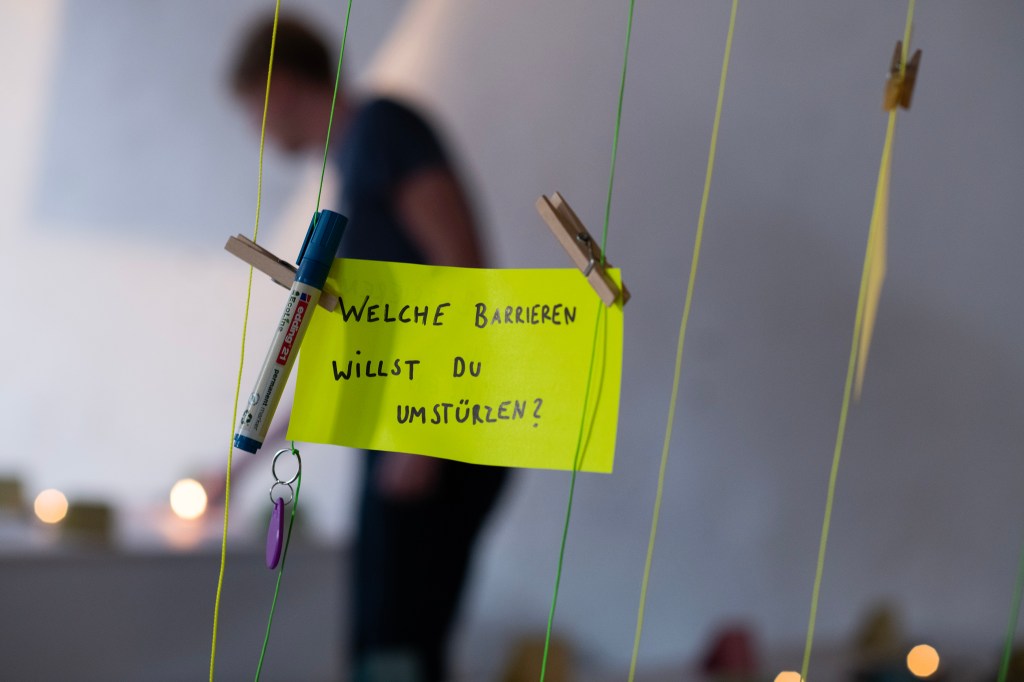 WELCHE BARRIEREN
WILLST DU
UMSTÜRZEN?
EcoLine
edding 21
permanent marker